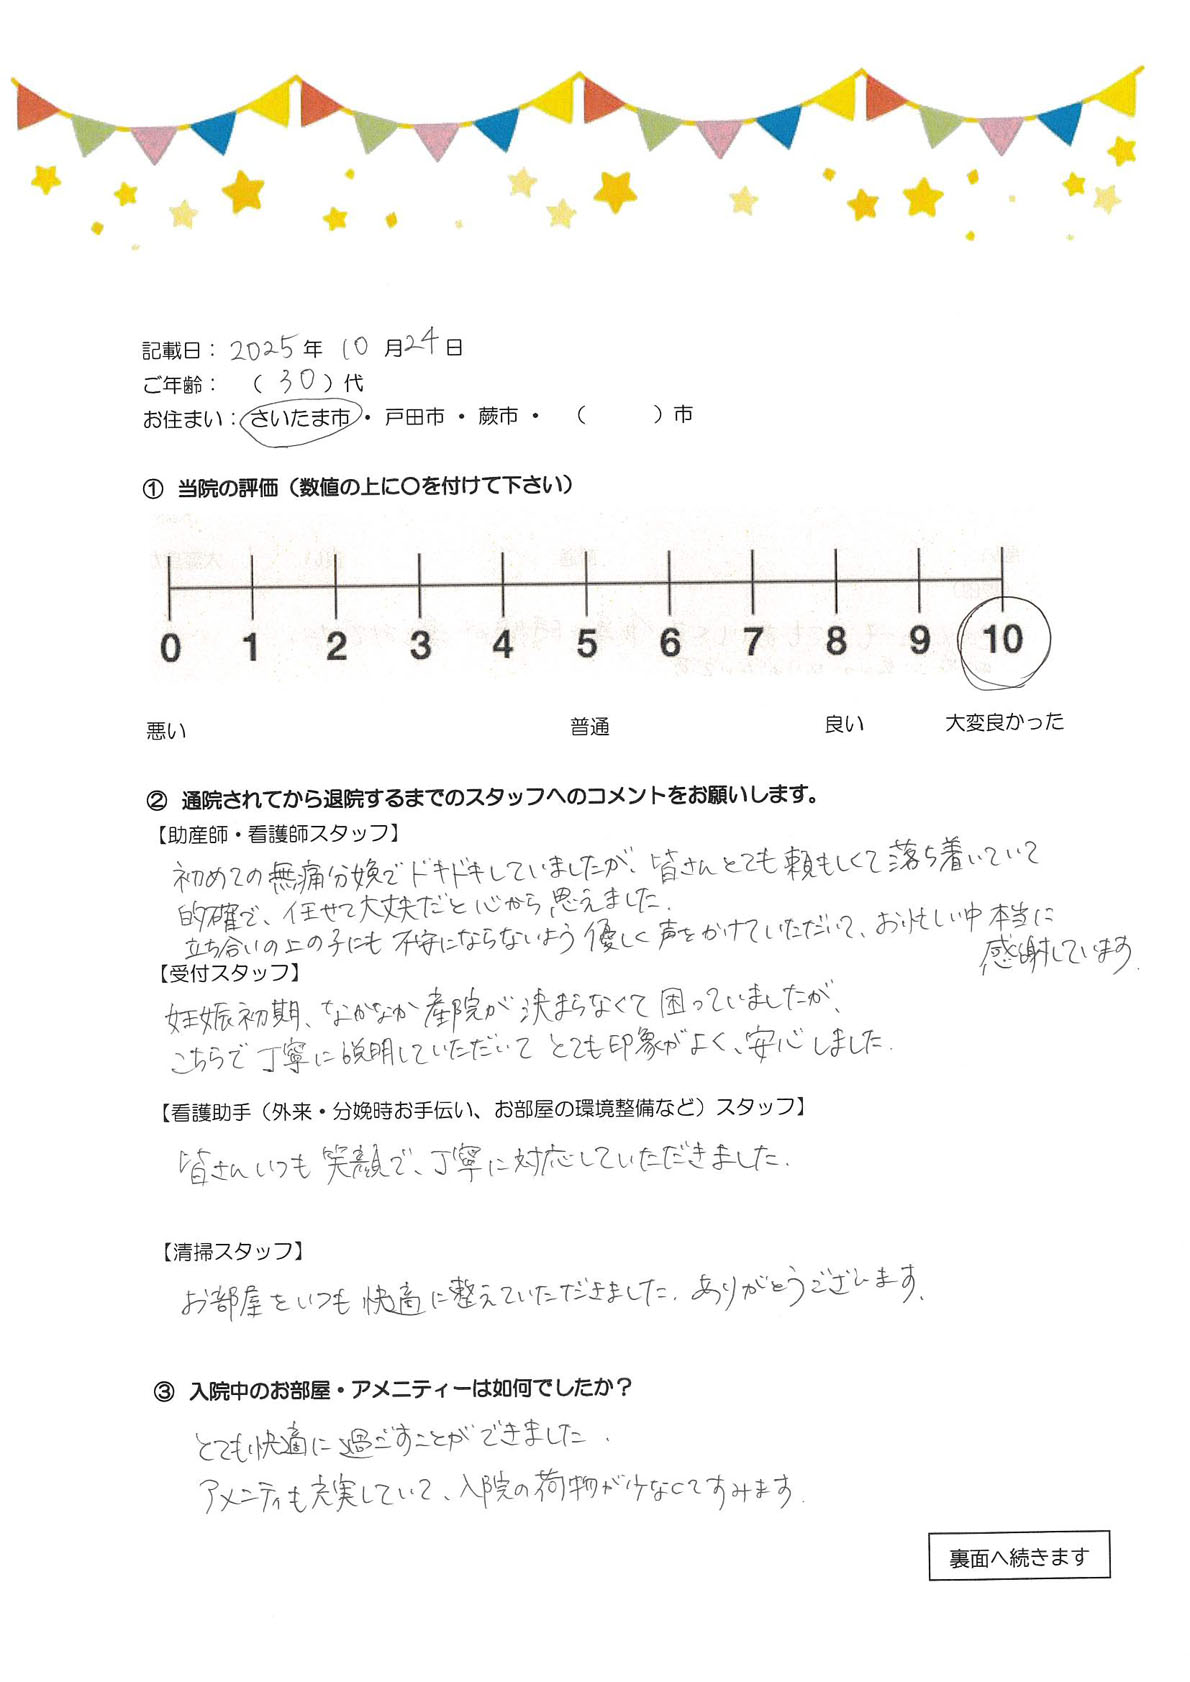 記載日： 2025年 10月24日
ご年齢： （ 30 ）代
お住まい：さいたま市・ 戸田市 ・ 蕨市 ・ （　　　）市
① 当院の評価（数値の上に〇を付けて下さい）
0 1 2 3 4 5 6 7 8 9 10
悪い 普通 良い 大変良かった
② 通院されてから退院するまでのスタッフへのコメントをお願いします。
【助産師・看護師スタッフ】
初めての無痛分娩でドキドキしていましたが、皆さんとても頼もしくて落ち着いていて
的確で、任せて大丈夫だと心から思えました.
立ち合いの上の子にも不安にならないよう優しく声をかけていただいて、お忙しい中本当に
感謝しています.
【受付スタッフ】
妊娠初期、なかなか産院が決まらなくて困っていましたが、
こちらで丁寧に説明していただいてとても印象がよく、安心しました.
【看護助手（外来・分娩時お手伝い、お部屋の環境整備など）スタッフ】
皆さんいつも笑顔で、丁寧に対応していただきました.
【清掃スタッフ】
お部屋をいつも快適に整えていただきました. ありがとうございます.
③ 入院中のお部屋・アメニティーは如何でしたか？
とても快適に過ごすことができました.
アメニティも充実していて、入院の荷物が少なくてすみます.
裏面へ続きます